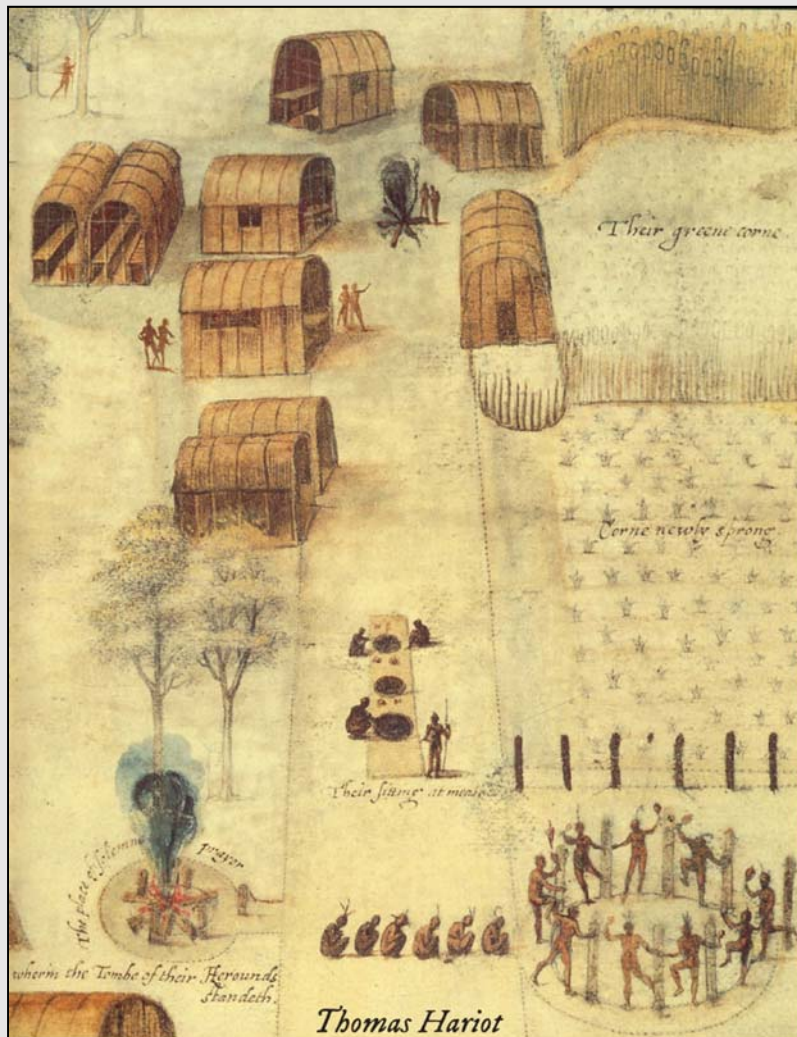 Their greene corne
Corne newly sprong
Their sitting at meate
The place of solemne prayer
wherin the Tombe of their Herounds
standeth.
Thomas Hariot